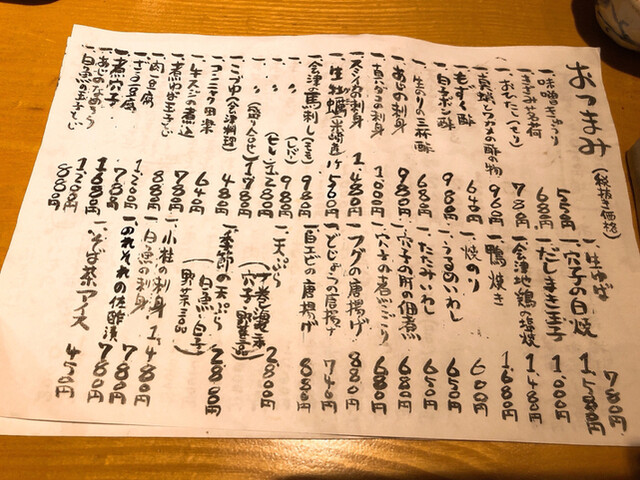 おつまみ(税抜き価格)
一、味噌きゅうり 520円
680円
一、おひたし(せり) 780円
一、真蛸とわかめの酢の物 960円
一、もずく酢 640円
一、白子ポン酢 980円
一、生のりの三杯酢 680円
一、あじの刺身 980円
一、赤貝の刺身 1,000円
一、スミイカの刺身 1,480円
一、生牡蠣 590円
一、会津馬刺し 980円
一、〃(レバー) 980円
一、〃(ヒレ) 2,800円
一、〃 1,980円
一、こづゆ(会津料理) 480円
一、コンニャク田楽 640円
一、牛スジの煮込 780円
一、煮はまぐり玉子とじ 880円
一、肉豆腐 880円
豆腐 1,060円
一、煮穴子 780円
一、あじのなめろう 1,080円
一、白魚の玉子とじ 1,200円
880円
一、生ゆば 780円
一、穴子の白焼 1,580円
一、だしまき玉子 1,000円
一、会津地鶏の塩焼 1,480円
一、鴨焼き 1,680円
一、焼のり 600円
一、うるめいわし 650円
一、たたみいわし 650円
一、穴子の肝の佃煮 680円
一、穴子の煮こごり 680円
一、フグの唐揚げ 880円
一、どじょうの唐揚げ 740円
一、白エビの唐揚げ 880円
一、天ぷら(才巻海老 穴子 野菜三品) 2,800円
一、季節の天ぷら(白魚・白子 野菜三品) 2,880円
一、小柱の刺身 1,480円
一、白魚の刺身 780円
一、のれそれの佐酢漬 780円
一、そば茶アイス 450円